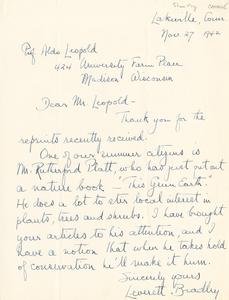 Lakeville, Conn.
Nov. 27 1942
Prof Aldo Leopold
424 University Farm Place
Madison Wisconsin
Dear Mr Leopold-
Thank you for the
reprints recently received.
One of our summer citizens is
Mr. Rutherford Platt, who had just put out
a nature book - This Green Earth.
He does a lot to stir local interest in
plants, trees and shrubs. I have bought
your articles to his attention, and I
have a notion that when he takes hold
of conservation he'll make it hum.
Sincerely yours
Leverett Bradley